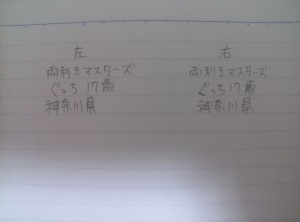 左
両利きマスターズ
ぐっち 17歳
神奈川県
右
両利きマスターズ
ぐっち 17歳
神奈川県